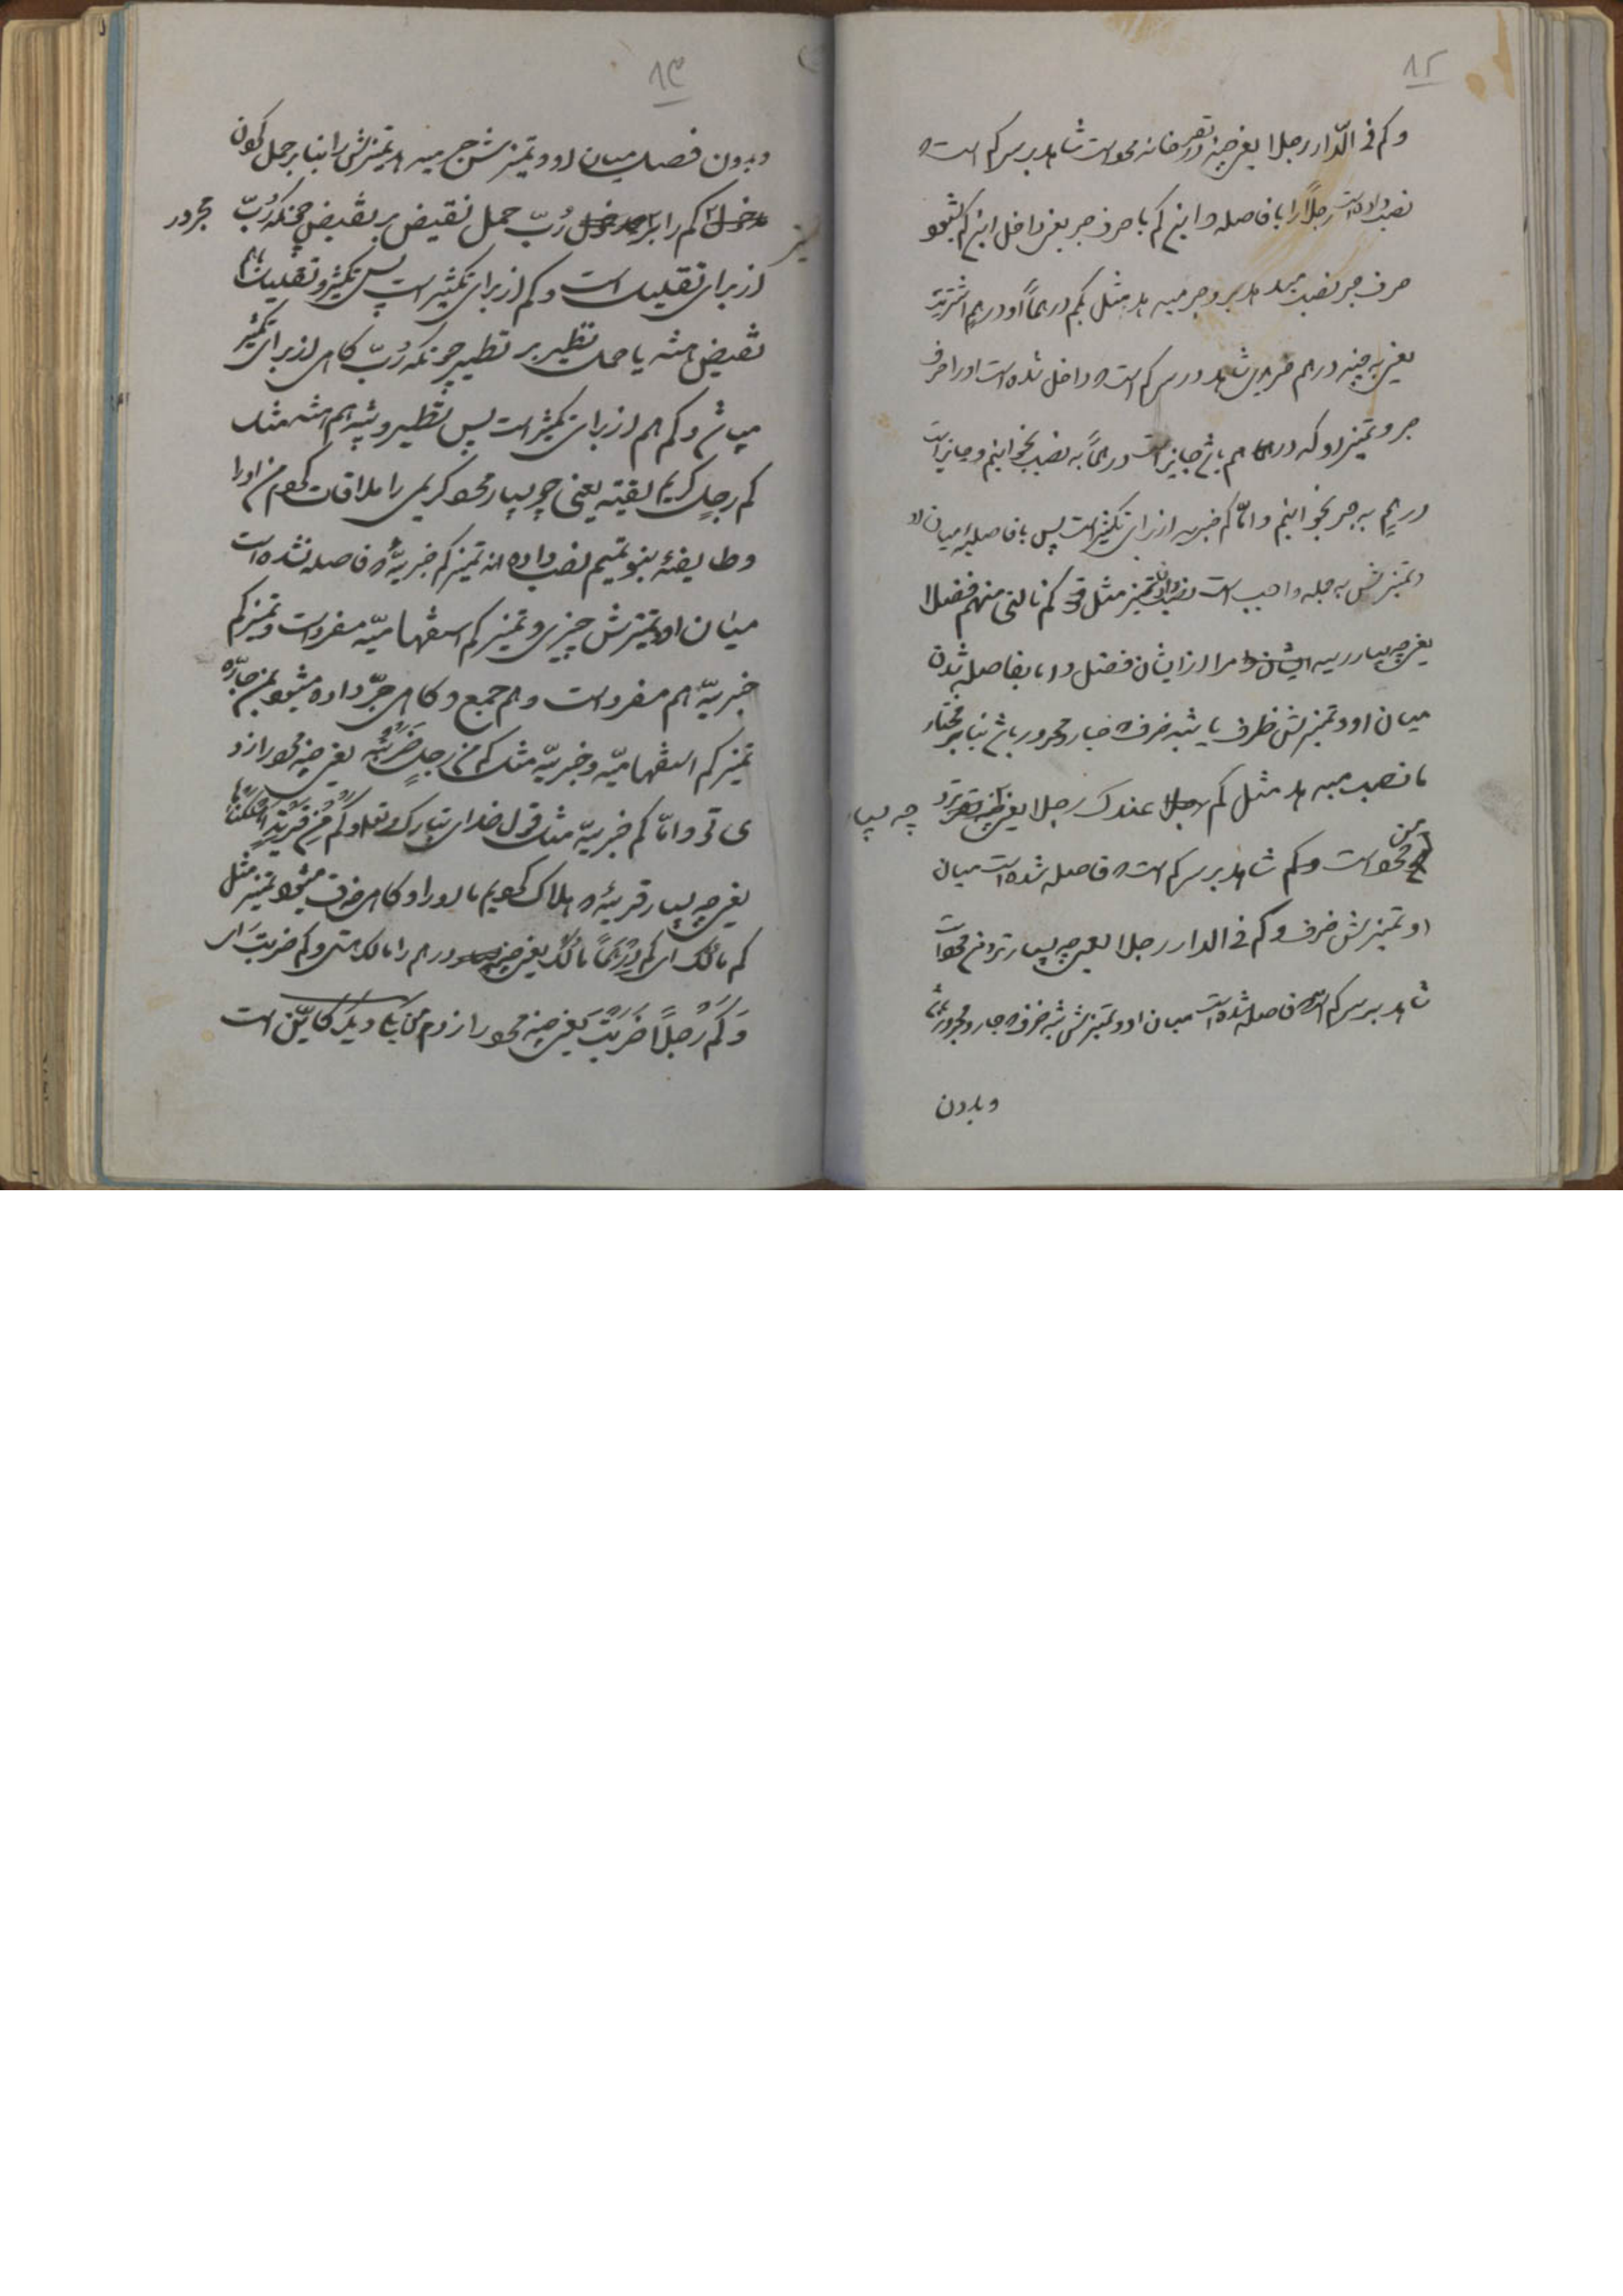 ۸۲
وکم فی الدّار رجلا یعنی چند نفر در خانه محو است شاهد بر سر کم است که
نصب داده است رجلاً را با فاصله و این کم با حرف جر یعنی داخل این کم بشود
حرف جر نصب میدهد و جر میدهد مثل بکم درهماً او درهمٍ اشتریت
یعنی به چند درهم خریدی شاهد در سر کم است که داخل شده است او را حرف
جر و تمیز او که درهما هم باشد جایز است درهماً به نصب بخوانیم و جایز است
درهمٍ به جر بخوانیم و امّا کم خبریه از برای تکثیر است پس با فاصله میان او
و تمیزش به جمله واجب است نصب دادن تمیز مثل قو کم نالنی منهم فضلا
یعنی چه بسیار رسید مرا از ایشان فضل و اما بفاصله شدن
میان او و تمیزش ظرف یا شبه ظرف که جار و مجرور باشد بنابر مختار
ما نصب میدهد مثل کم عندک رجلا یعنی نزد چه بسیا
محو است و کم شاهد بر سر کم است که فاصله شده است میان
او تمیزش ظرف و کم فی الدار رجلا یعنی چه بسیار محو است
شاهد بر سر کم است که فاصله شده است میان او و تمیزش شبه ظرف که جار و مجرور باشد
و بدون
۸۳
و بدون فصل میان او و تمیزش جر میدهد تمیزش را بنابر حمل کردن
کم را بر رُبّ حمل نقیض بر نقیض چونکه رُبّ مجرور
از برای تقلیل است و کم از برای تکثیر است پس تکثیر و تقلیل با هم
نقیض هستند یا حمل نظیر بر نظیر چونکه رُبّ گاهی از برای تکثیر
میباشد و کم هم از برای تکثیر است پس نظیر و شبه هم هستند مثل
کم رجلٍ کریمٍ لقیته یعنی چه بسیار محو کریمی را ملاقات کردم من او را
و طایفهٔ بنو تمیم نصب داده اند تمیز کم خبریّه که فاصله نشده است
میان او و تمیزش چیزی و تمیز کم استفهامیّه مفرد است و تمیز کم
خبریّه هم مفرد است و هم جمع و گاهی جرّ داده میشود بمن جارّه
تمیز کم استفهامیّه و خبریّه مثل کم من رجلٍ ضَرَبْتَهُ یعنی چند محو را زد
ی تو و امّا کم خبریّه مثل قول خدای تبارک و تعالی و کَم مِن قَریَةٍ اَهْلَکْناها
یعنی چه بسیار قریهٔ که هلاک کردیم ما او را و گاهی حذف میشود تمیز مثل
کم مالُکَ ای کم دِرْهَماً مالُکَ یعنی چند درهم را مالک هستی و کم ضربتَ ای
وَ کَم رَجُلاً ضَرَبْتَ یعنی چند محو را زدم از کنایات دیگر کایّن است